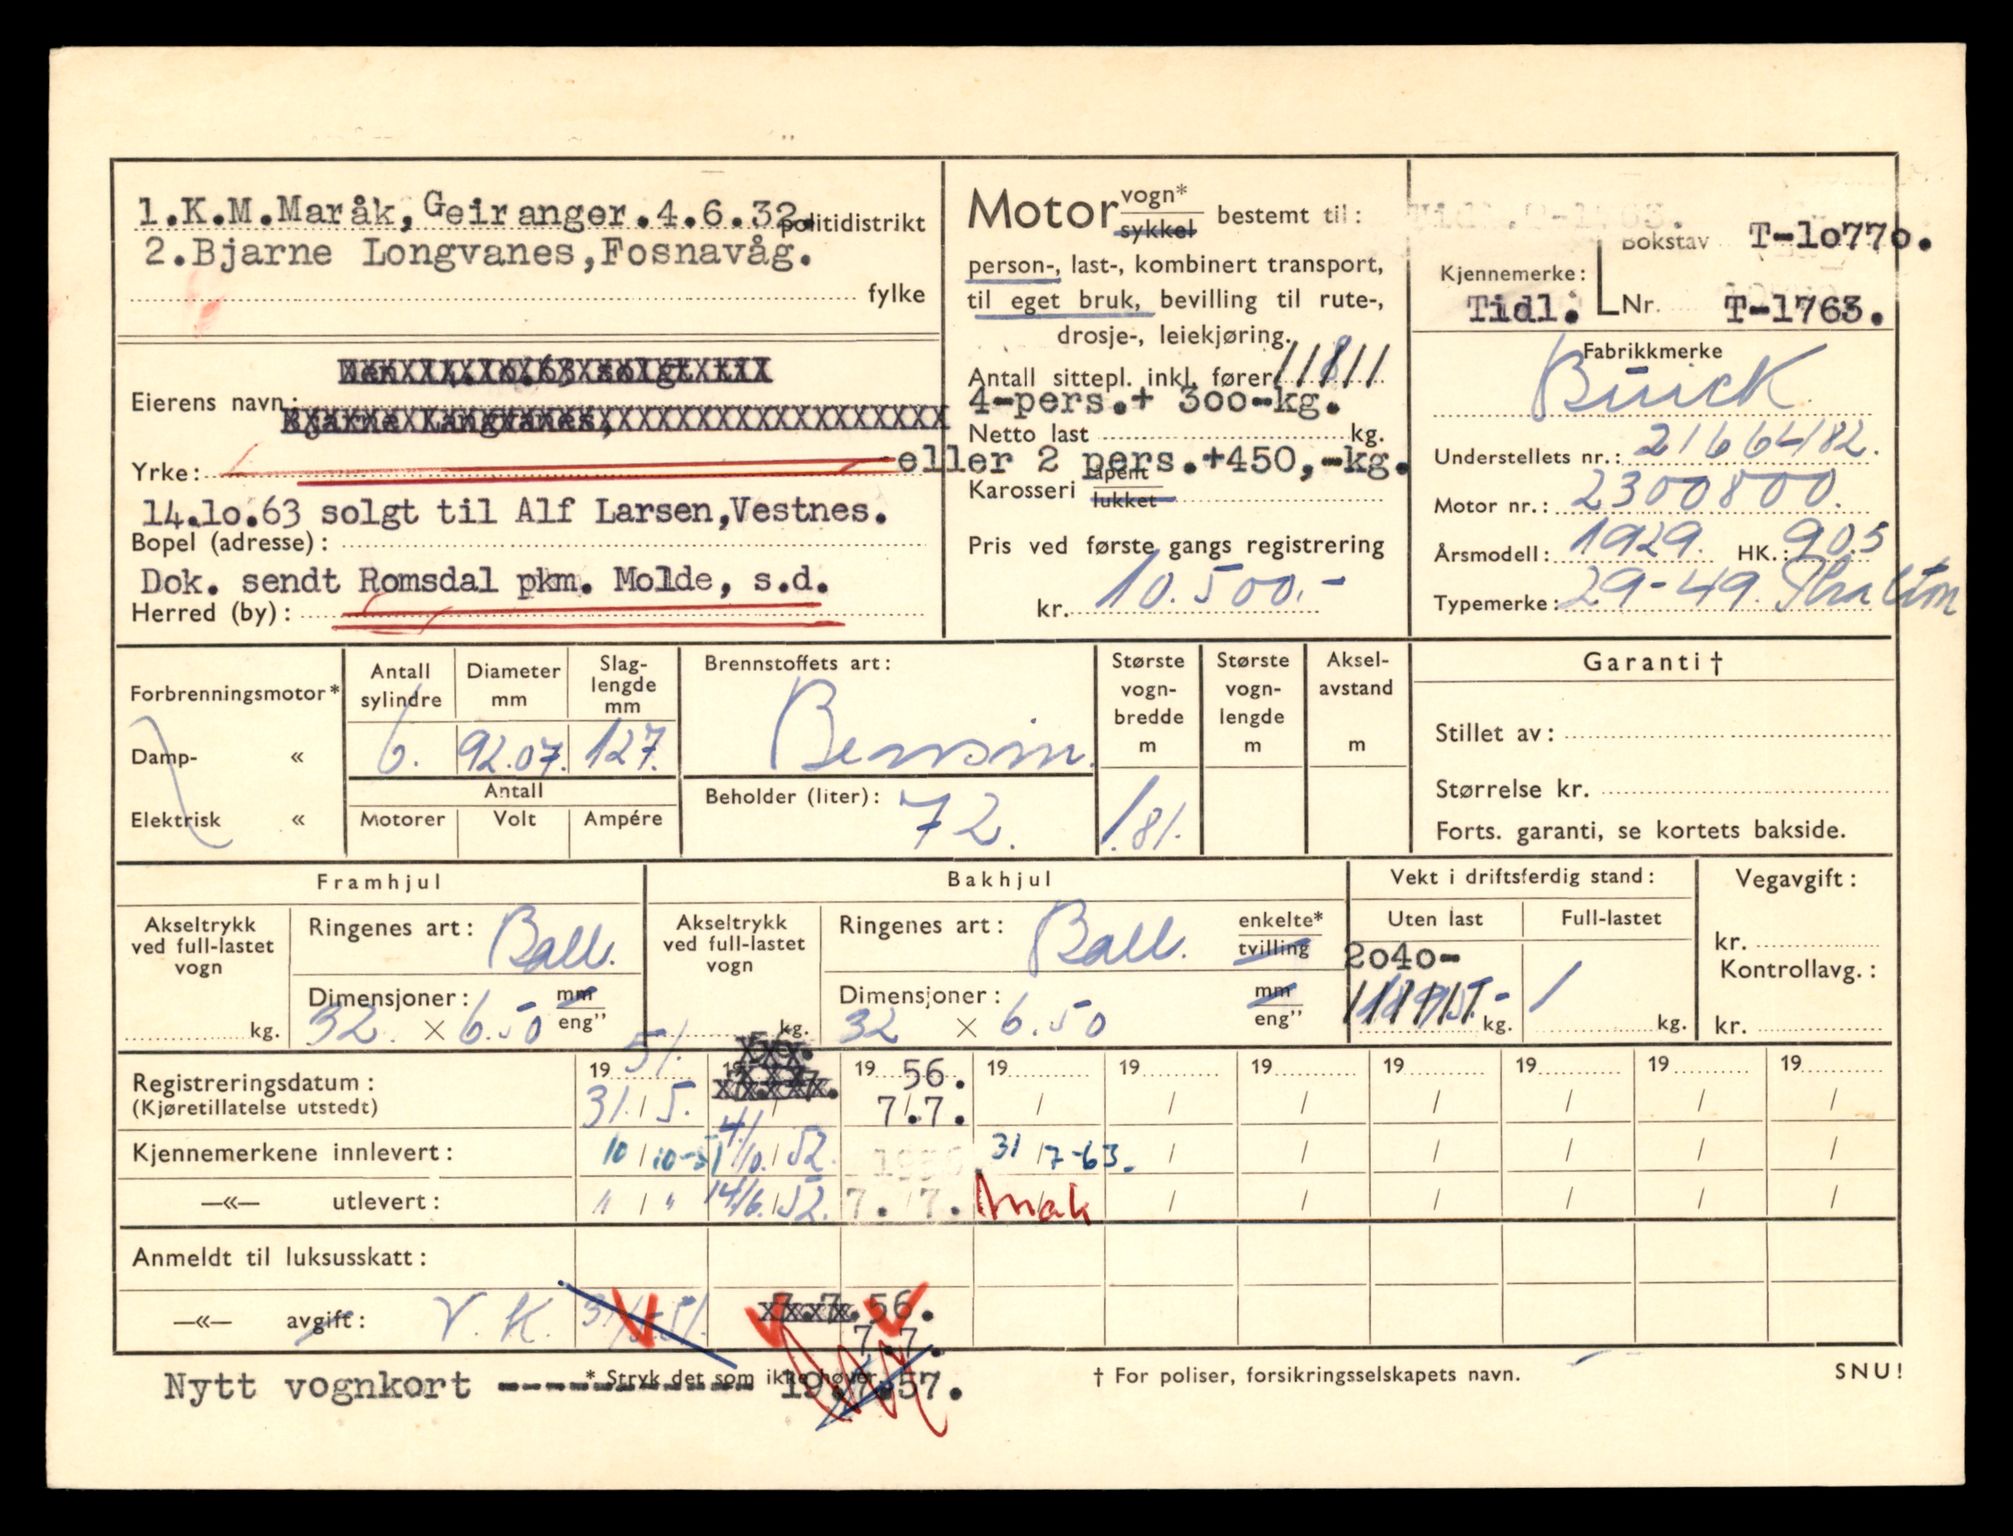 1.K.M.Maråk, Geiranger.4.6.32. politidistrikt
2.Bjarne Longvanes,Fosnavåg.
fylke
Den 14.10.63 solgt til
Eierens navn:
Bjarne Langvanes,
Yrke:
14.1o.63 solgt til Alf Larsen,Vestnes.
Bopel (adresse):
Dok. sendt Romsdal pkm. Molde, s.d.
Herred (by):
Motor vogn* sykkel bestemt til:
person-, last-, kombinert transport,
til eget bruk, bevilling til rute-,
drosje-, leiekjøring.
Antall sittepl. inkl. fører
4-pers.+ 3oo-kg.
Netto last kg.
eller 2 pers.+450,-kg.
Karosseri åpent lukket
Pris ved første gangs registrering
kr. 10.500.-
Bokstav T-1o77o.
Kjennemerke:
Tidl. Nr. T-1763.
Fabrikkmerke
Buick
Understellets nr.: 2166482.
Motor nr.: 2300800.
Årsmodell: 1929. HK.: 90.5
Typemerke: 29-49.
Forbrenningsmotor*
Damp- «
Elektrisk «
Antall sylindre
Diameter mm
Slaglengde mm
6. 92.07. 127.
Antall
Motorer Volt Ampére
Brennstoffets art:
Bensin.
Beholder (liter): 72.
Største vognbredde m
Største vognlengde m
Akselavstand m
1.81.
Garanti†
Stillet av:
Størrelse kr.
Forts. garanti, se kortets bakside.
Framhjul
Akseltrykk ved full-lastet vogn
kg.
Ringenes art: Ball.
Dimensjoner: mm eng”
32. × 6.50
Bakhjul
Akseltrykk ved full-lastet vogn
kg.
Ringenes art: Ball. enkelte* tvilling
Dimensjoner: mm eng”
32 × 6.50
Vekt i driftsferdig stand:
Uten last Full-lastet
2o4o-
kg. kg.
Vegavgift:
kr.
Kontrollavg.:
kr.
Registreringsdatum: 19 51. 19 19 56. 19 19 19 19 19 19 19
(Kjøretillatelse utstedt) 31./5. 7.7.
Kjennemerkene innlevert: 10/10-51 4/10.52. 31/7-63.
—«— utlevert: " / " 14/6.52. 7.7. Mak
Anmeldt til luksusskatt:
—«— avgift: V. K. 31/5-51. 7.7.56.
7.7.
Nytt vognkort ------------ 19.7.57.
* Stryk det som ikke høver.
† For poliser, forsikringsselskapets navn.
SNU!